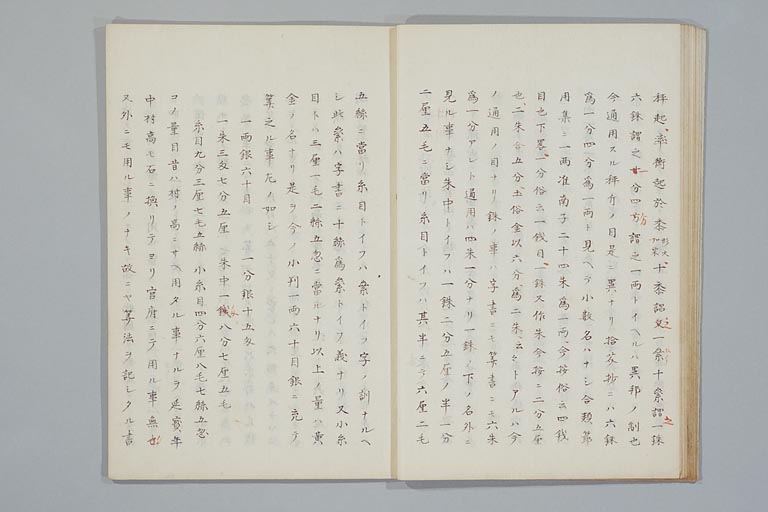 秤起、率衡起於黍 形大如粟 十黍謂之一絫十絫謂一銖
六銖謂之一分四分謂之一両トイヘルハ異邦ノ制也
今通用スル秤分ノ目是ニ異ナリ拾芥抄ニハ六銖
為一分四分為一両ト見ヘテ小数名ハナシ合類節
用集ニ一両准南子二十四朱為一両、今按俗云四戔
目也下畧一分俗云一戔目一銖又作朱今按ニ二分五厘
也、二朱 五分五 俗金以六分為二朱、云々トアルハ今
ノ通用ノ目ナリ銖ノ事ハ字書ニモ算書ニモ六朱
為一分アレト通用ハ四朱一分ナリ一銖ノ下ノ名外ニ
見ル事ナシ朱中トイフハ一銖二分五厘ノ半一分
二厘五毛ニ當リ糸目トイフハ其半ニテ六厘二毛
五絲ニ當リ糸目トイフハ絫トイフ字ノ訓ナルヘ
シ此絫ハ字書ニ十絲為絫トイフ義ナリ又小糸
目トハ三厘一毛二絲五忽ニ當ルナリ以上ノ量ハ黄
金ノ名ナリ是ヲ今ノ小判一両六十目銀ニ充テ
算之ル事左ノ如シ
一両銀六十目 一分銀十五匁
一朱三匁七分五厘 朱中一匁八分七厘五毛
糸目九分三厘七毛五絲 小糸目四分六厘八毛七絲五忽
コノ量目昔ハ村ノ高ニサヘ用タル事ナルヲ延寳年
中村高モ石ニ換リテヨリ官府ニテ用ル事無也
又外ニモ用ル事ノナキ故ニヤ算法ヲ記シタル書